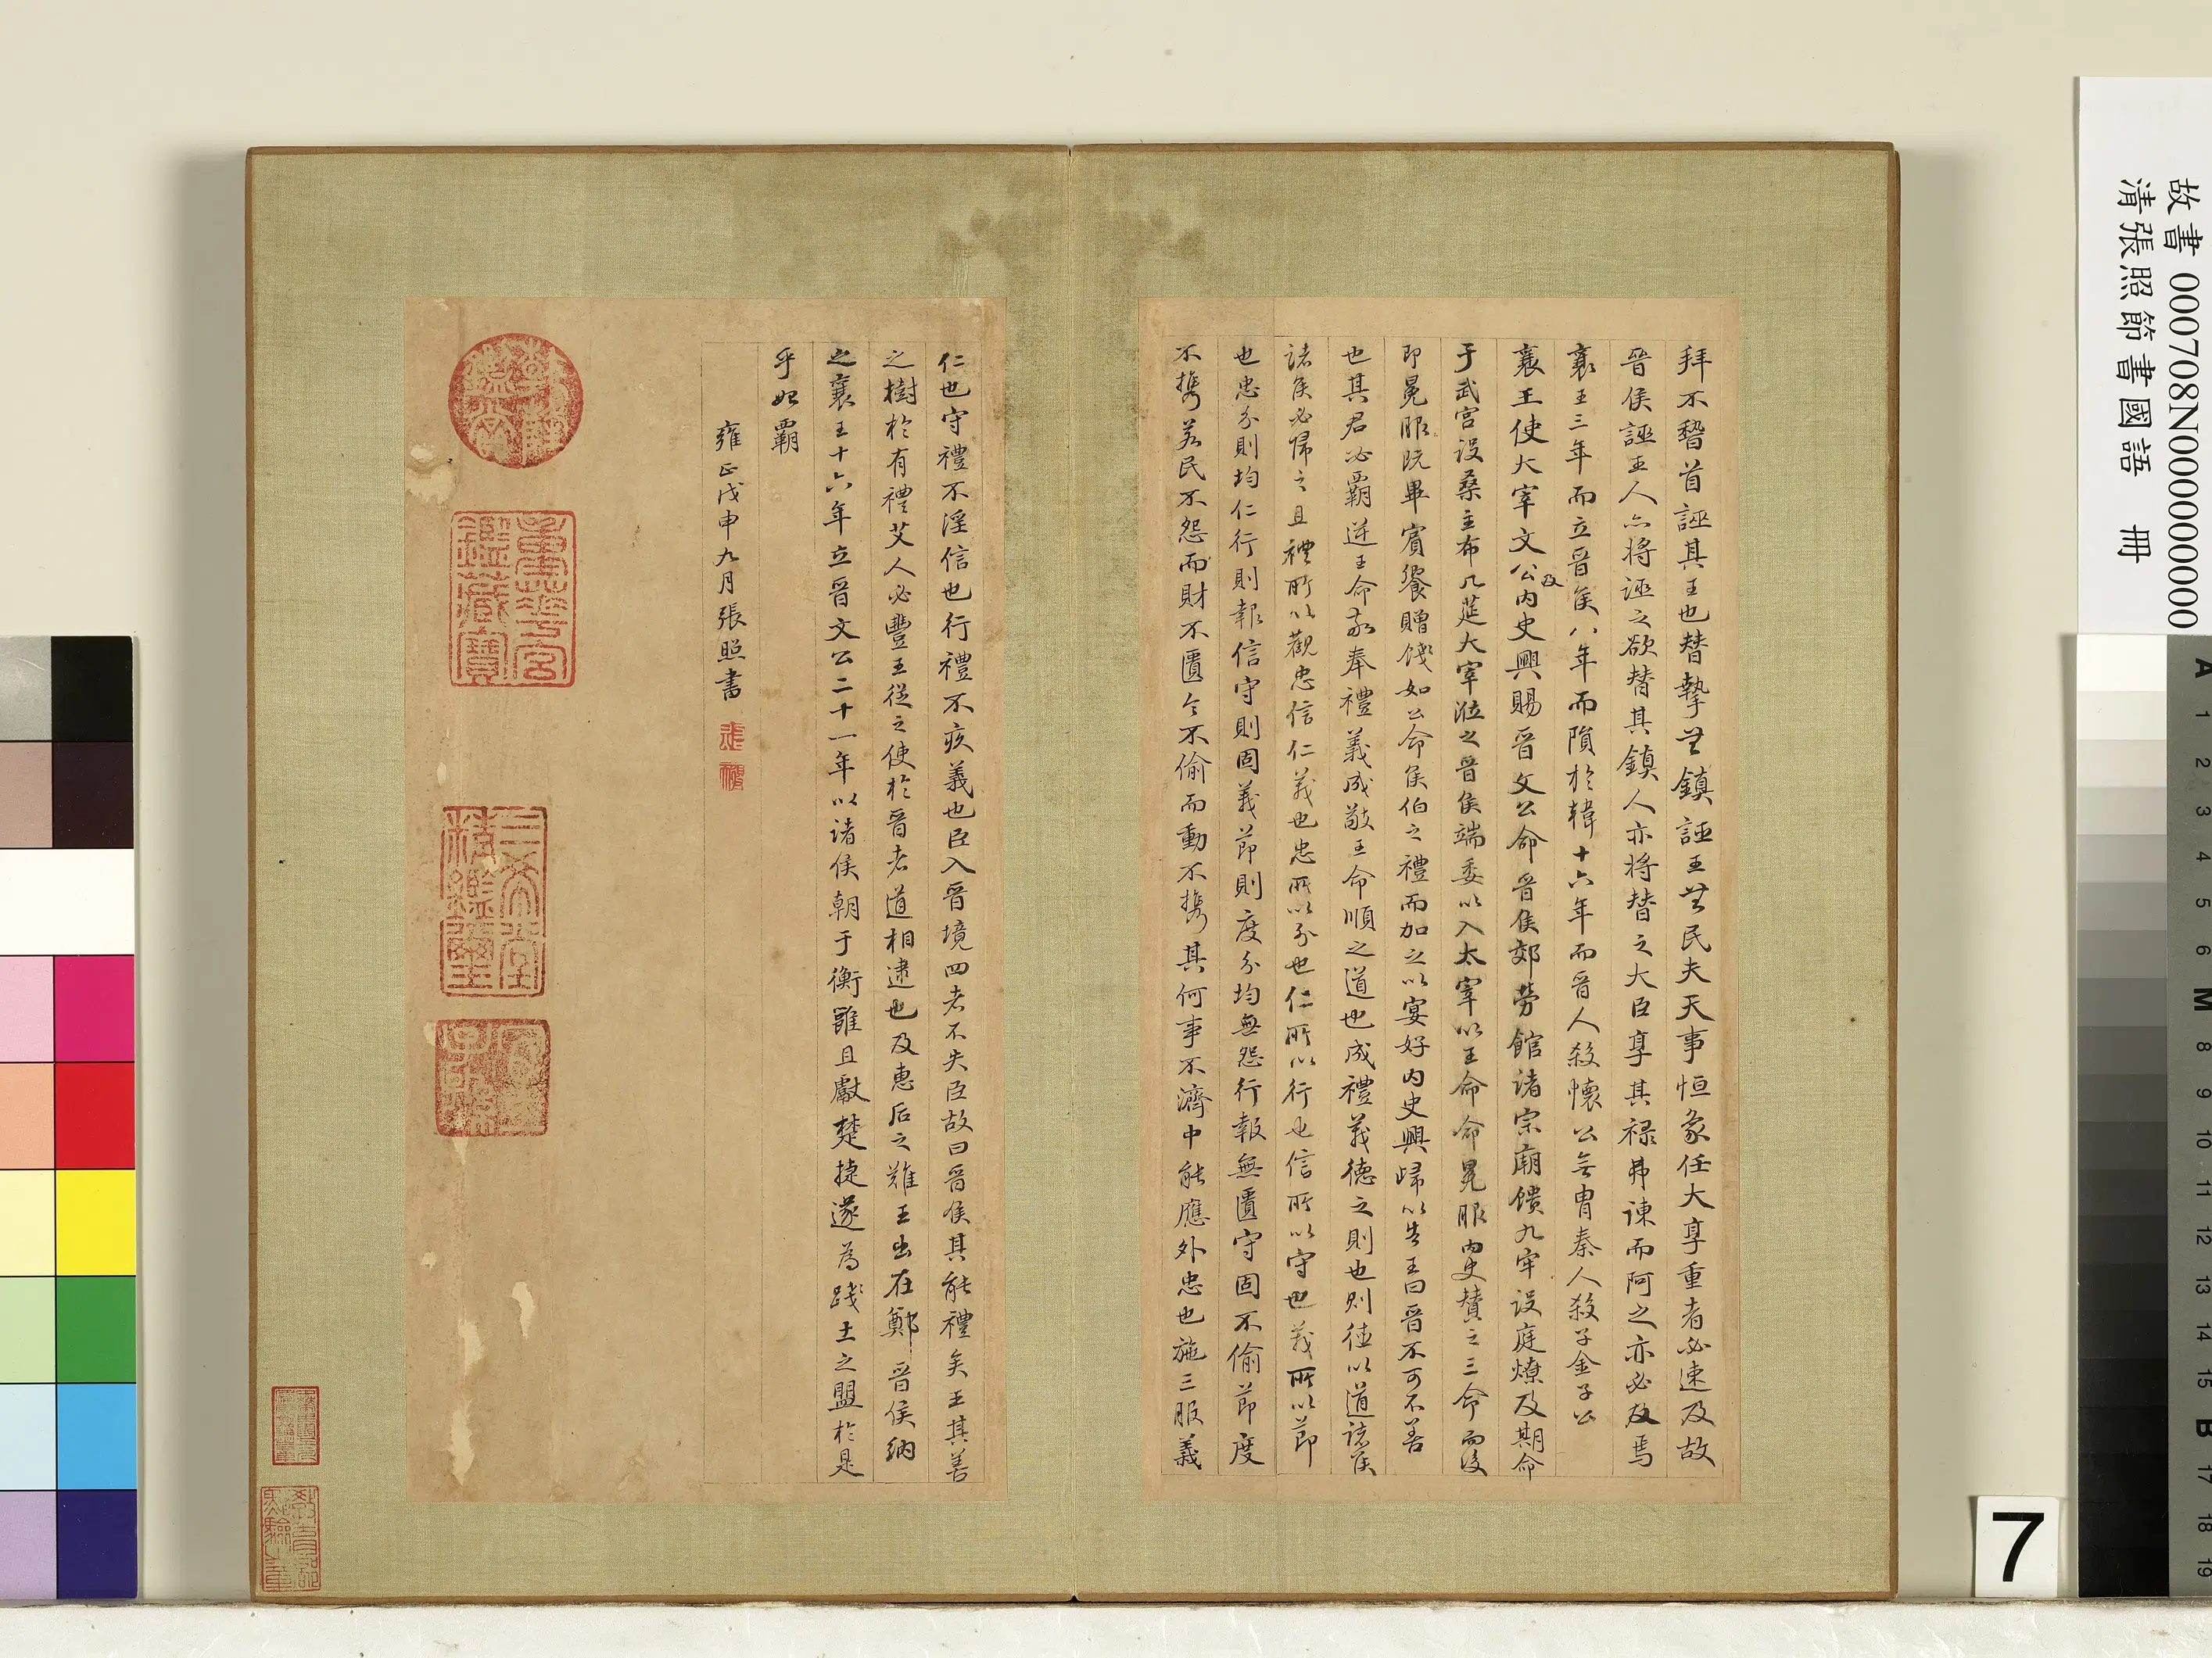 拜不稽首誣其王也替摯無鎮誣王無民夫天事恒象任大享重者必速及故
晉侯誣王人亦將誣之欲替其鎮人亦將替之大臣享其祿弗諫而阿之亦必及焉
襄王三年而立晉侯八年而隕於韓十六年而晉人殺懷公無胄秦人殺子金子公
襄王使大宰文公及內史興賜晉文公命晉侯郊勞館諸宗廟饋九牢設庭燎及期命
于武宮設桑主布几筵大宰涖之晉侯端委以入太宰以王命命冕服內史贊之三命而後
即冕服既畢賓饗贈餞如公命侯伯之禮而加之以宴好內史興歸以告王曰晉不可不善
也其君必霸逆王命敬奉禮義成敬王命順之道也成禮義德之則也則德以道諸侯
諸侯必歸之且禮所以觀忠信仁義也忠所以分也仁所以行也信所以守也義所以節
也忠分則均仁行則報信守則固義節則度分均無怨行報無匱守固不偷節度
不攜若民不怨而財不匱令不偷而動不攜其何事不濟中能應外忠也施三服義
仁也守禮不淫信也行禮不疚義也臣入晉境四者不失臣故曰晉侯其能禮矣王其善
之樹於有禮艾人必豐王從之使於晉者道相逮也及惠后之難王出在鄭晉侯納
之襄王十六年立晉文公二十一年以諸侯朝于衡雝且獻楚捷遂為踐土之盟於是
乎始霸
雍正戊申九月張照書
乾隆鑑賞
重華宮鑑藏寶
三希堂精鑑璽
宜子孫
故書 00708N000000000
清張照節書國語 冊
7
A 1 2 3 4 5 6 M 8 9 10 11 12 13 14 15 B 17 18 19